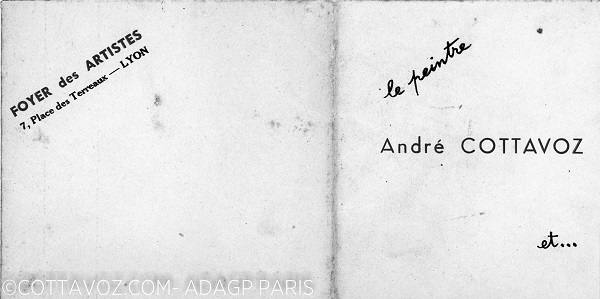 FOYER des ARTISTES
7, Place des Terreaux — LYON
le peintre
André COTTAVOZ
et...
©COTTAVOZ.COM- ADAGP PARIS